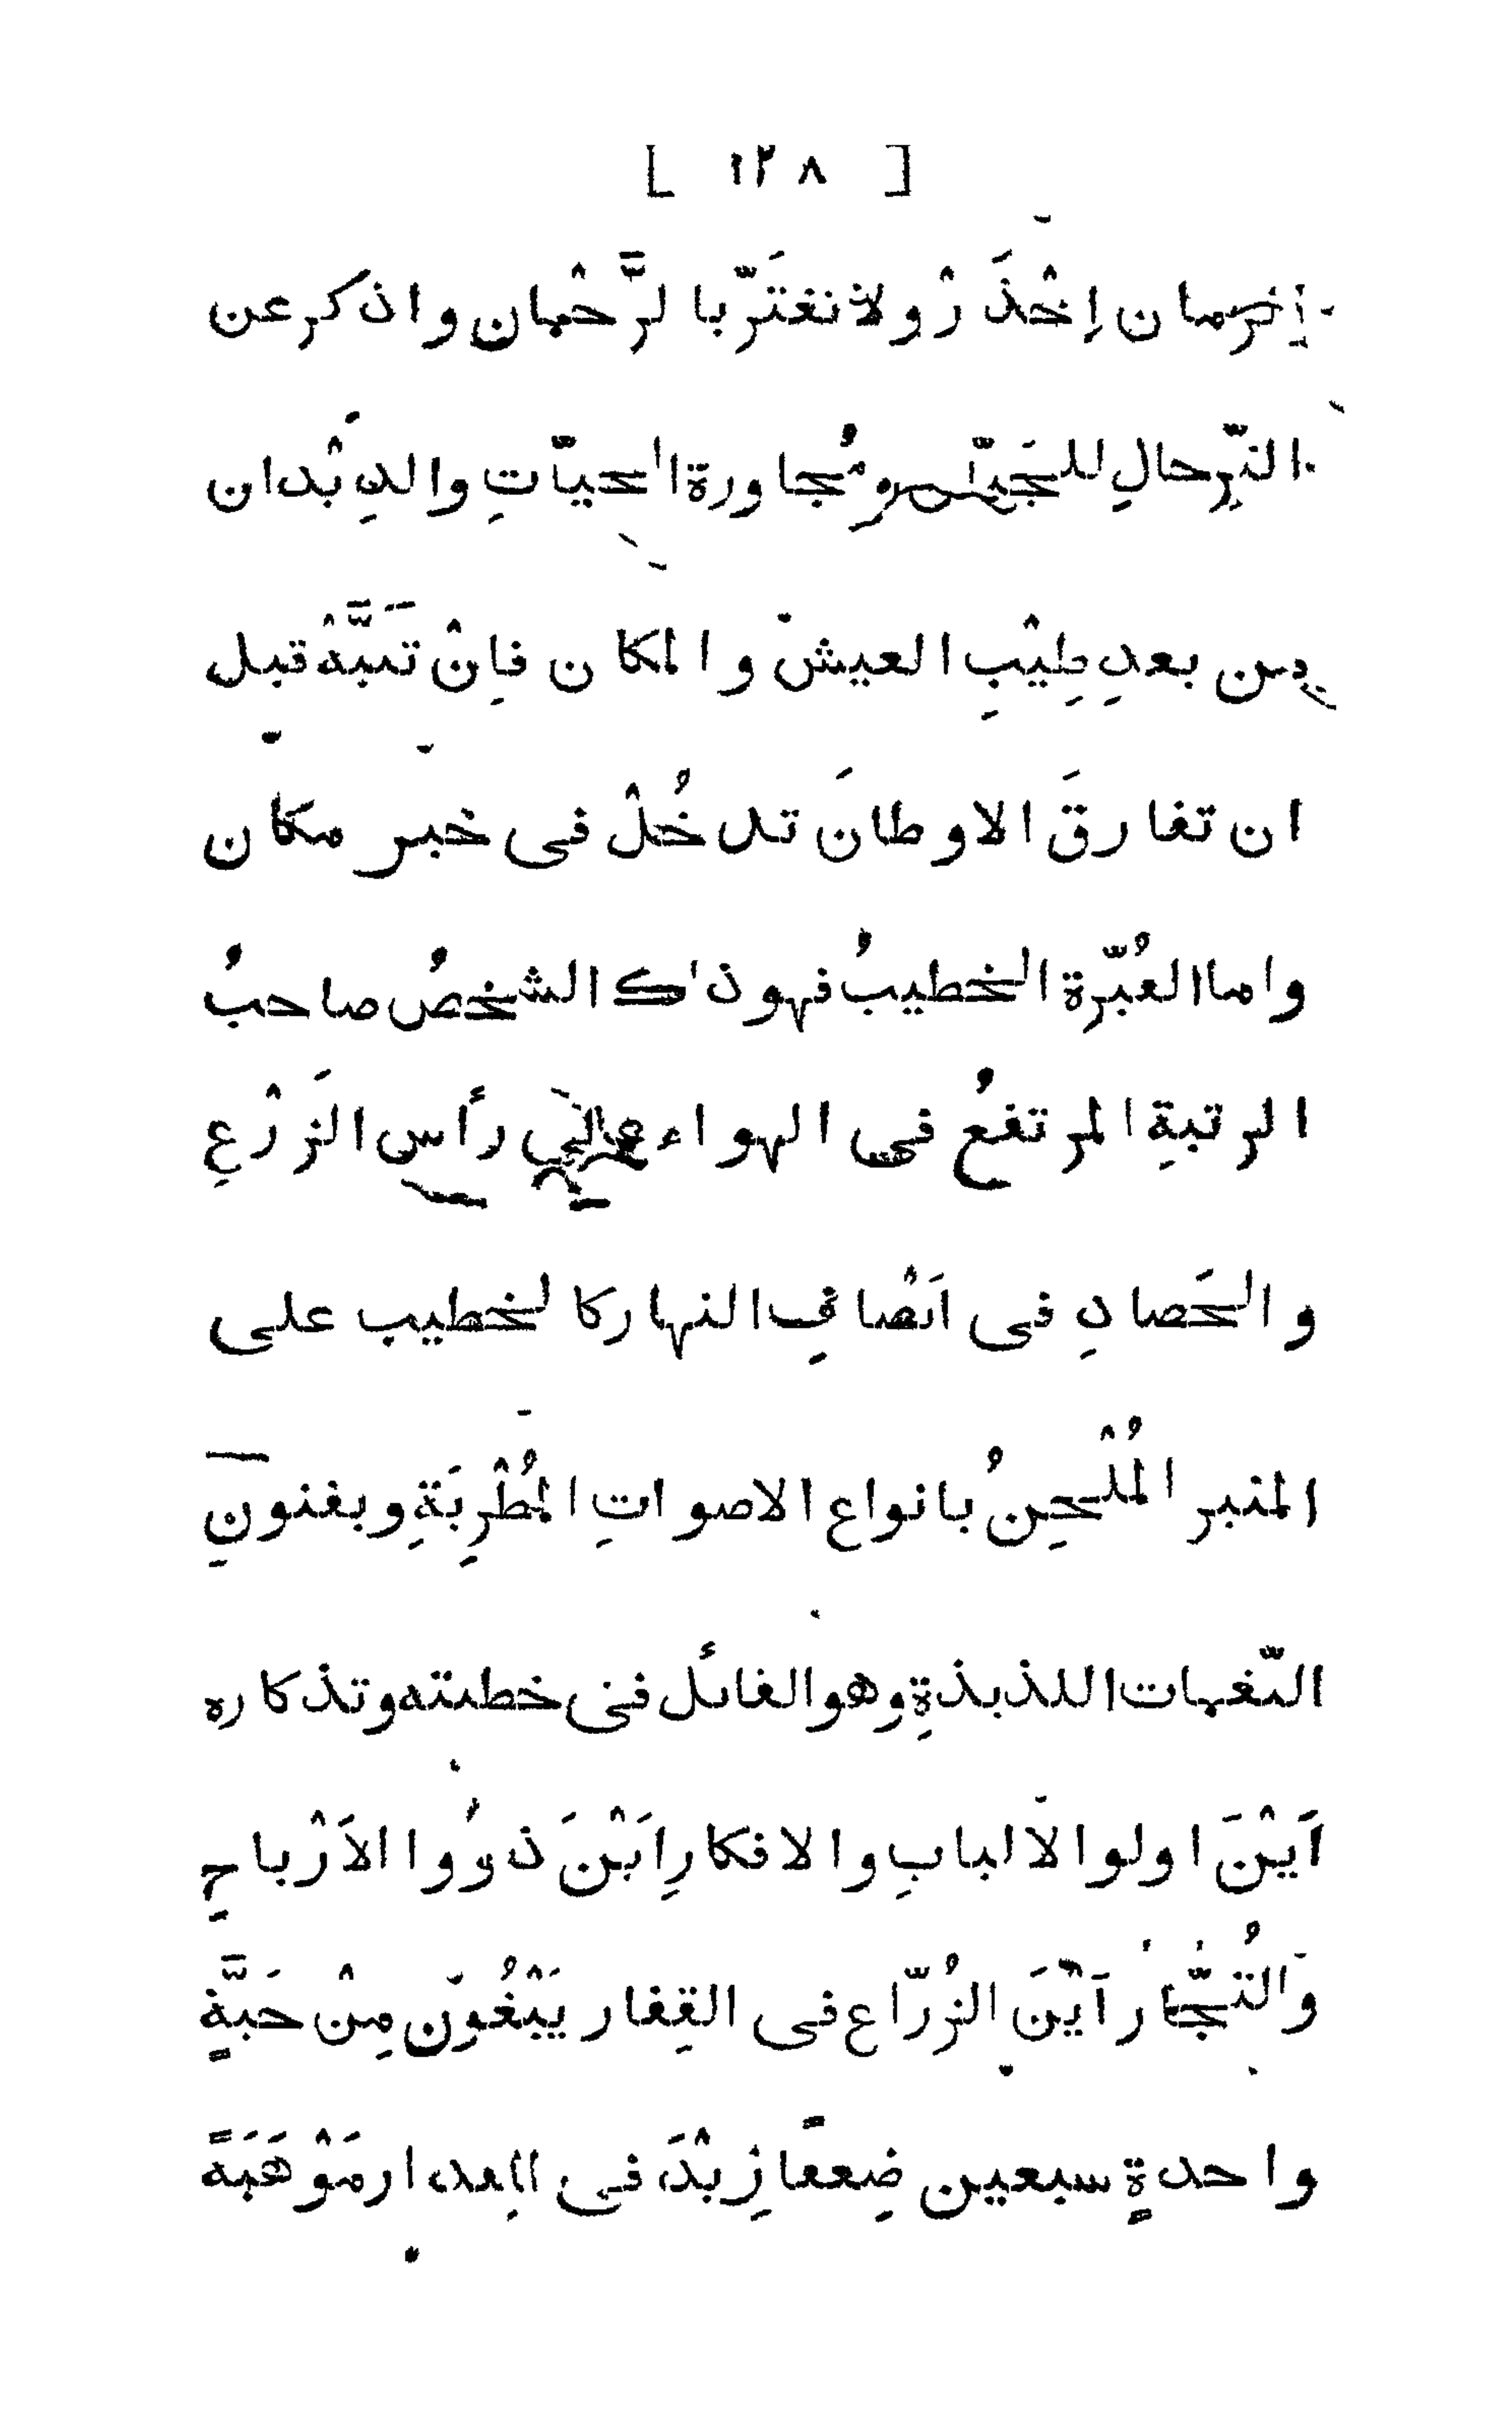 [ ١٢٨ ]
إِحْذَرْ ولا تغتَرّ با لرَّحْمان واذكر عن
الترحالِ ومُجاورة الحيّاتِ والدِيْدان
من بعدِ طِيْبِ العيش والمكان فاِنْ تَنبَّهْ قبل
ان تفارقَ الاوطانَ تدخُلْ فى خير مكان
واما القُبّرة الخطيبُ فهو ذاك الشخصُ صاحبُ
الرتبةِ المرتفعُ فى الهواء على رأس الزَرْعِ
والحَصادِ فى اَنْصافِ النهار كالخطيب على
المنبر المُلْحِنُ بانواع الاصواتِ المُطْرِبَةِ وبفنونِ
النّغمات اللذيذةِ وهو القائل فى خطبته وتذكاره
اَيْنَ اولوا الالبابِ والافكارِ اَيْنَ ذوُوا الاَرْباحِ
والتُجّار اَيْنَ الزُرّاع فى القِفار يَبْغُوْن مِنْ حَبَّةٍ
واحدةٍ سبعين ضِعفًا زِيْدَ فى المقدار مَوْهَبَةً